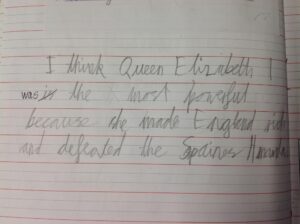 I think Queen Elizabeth I
was is the most powerful
because she made England rich
and defeated the Spaines Armada